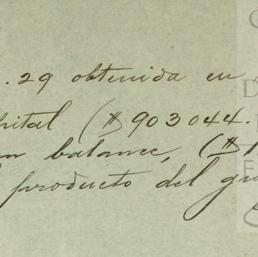 .29 obtenida en
pital ($903044.
un balance, ($
producto del gr